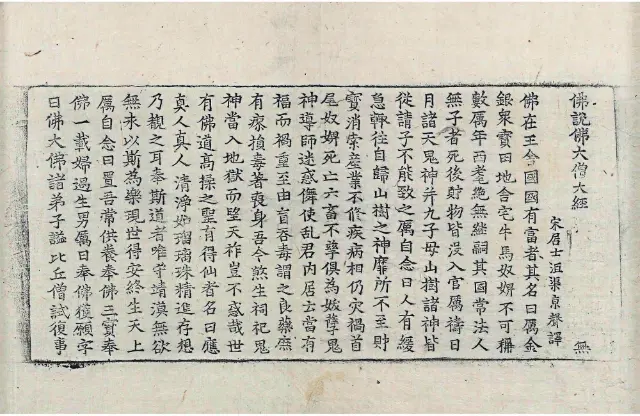 佛說佛大僧大經
宋居士沮渠京聲譯 無
佛在王舍國國有富者其名曰厲金
銀衆寶田地舍宅牛馬奴婢不可稱
數厲年西耄絶無繼嗣其國常法人
無子者死後財物皆没入官厲禱日
月諸天鬼神并九子母山樹諸神皆
從請子不能致之厲自念曰人有緩
急輙往自歸山樹之神靡所不至財
寶消索產業不修疾病相仍灾禍首
尾奴婢死亡六畜不孳俱為妖孽鬼
神導師迷惑儛使亂君内居云當有
福而禍重至由盲吞毒謂之良藥庶
有瘳損毒著喪身吾今煞生祠祀鬼
神當入地獄而望天祚豈不惑哉世
有佛道高操之聖有得仙者名曰應
真人真人清淨如瑠璃珠精進存想
乃覩之耳奉斯道者唯守靖漠無欲
無求以斯為樂現世得安終生天上
厲自念曰置吾常供養奉佛三寶奉
佛一載婦遇生男厲曰奉佛獲願字
曰佛大佛諸弟子謚比丘僧試復事